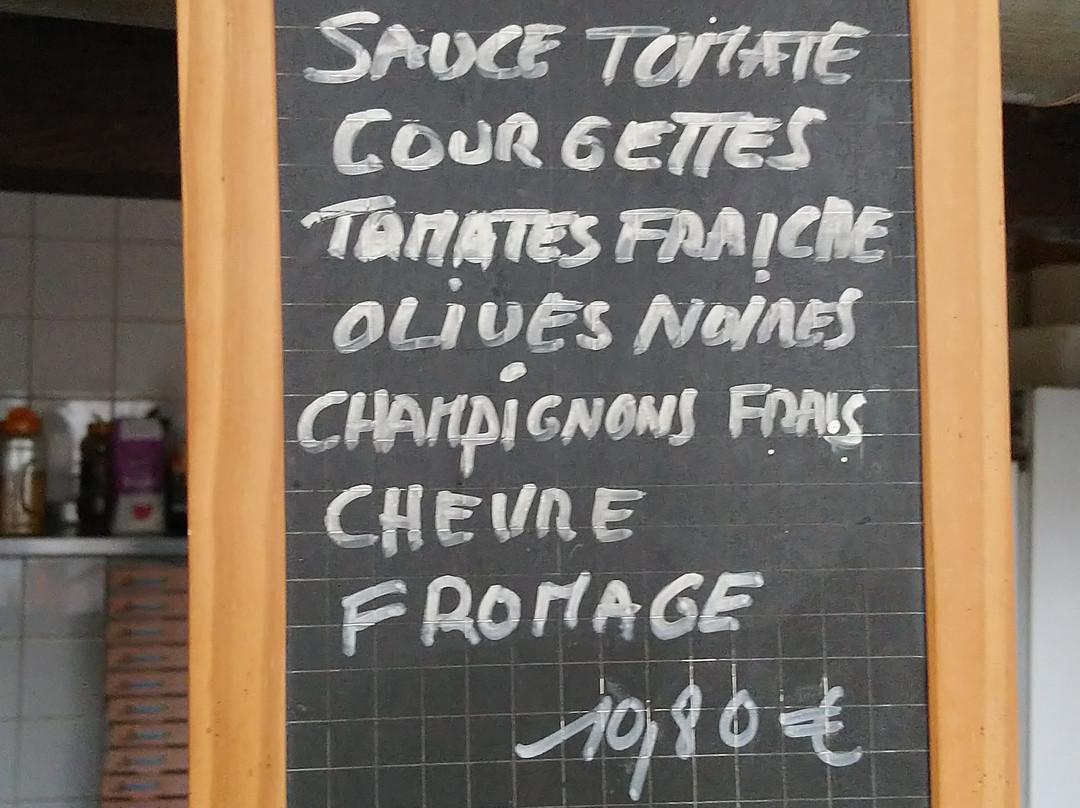 SAUCE TOMATE
COURGETTES
TOMATES FRAICHE
OLIVES NOIRES
CHAMPIGNONS FRAIS
CHEVRE
FROMAGE
10,80 €